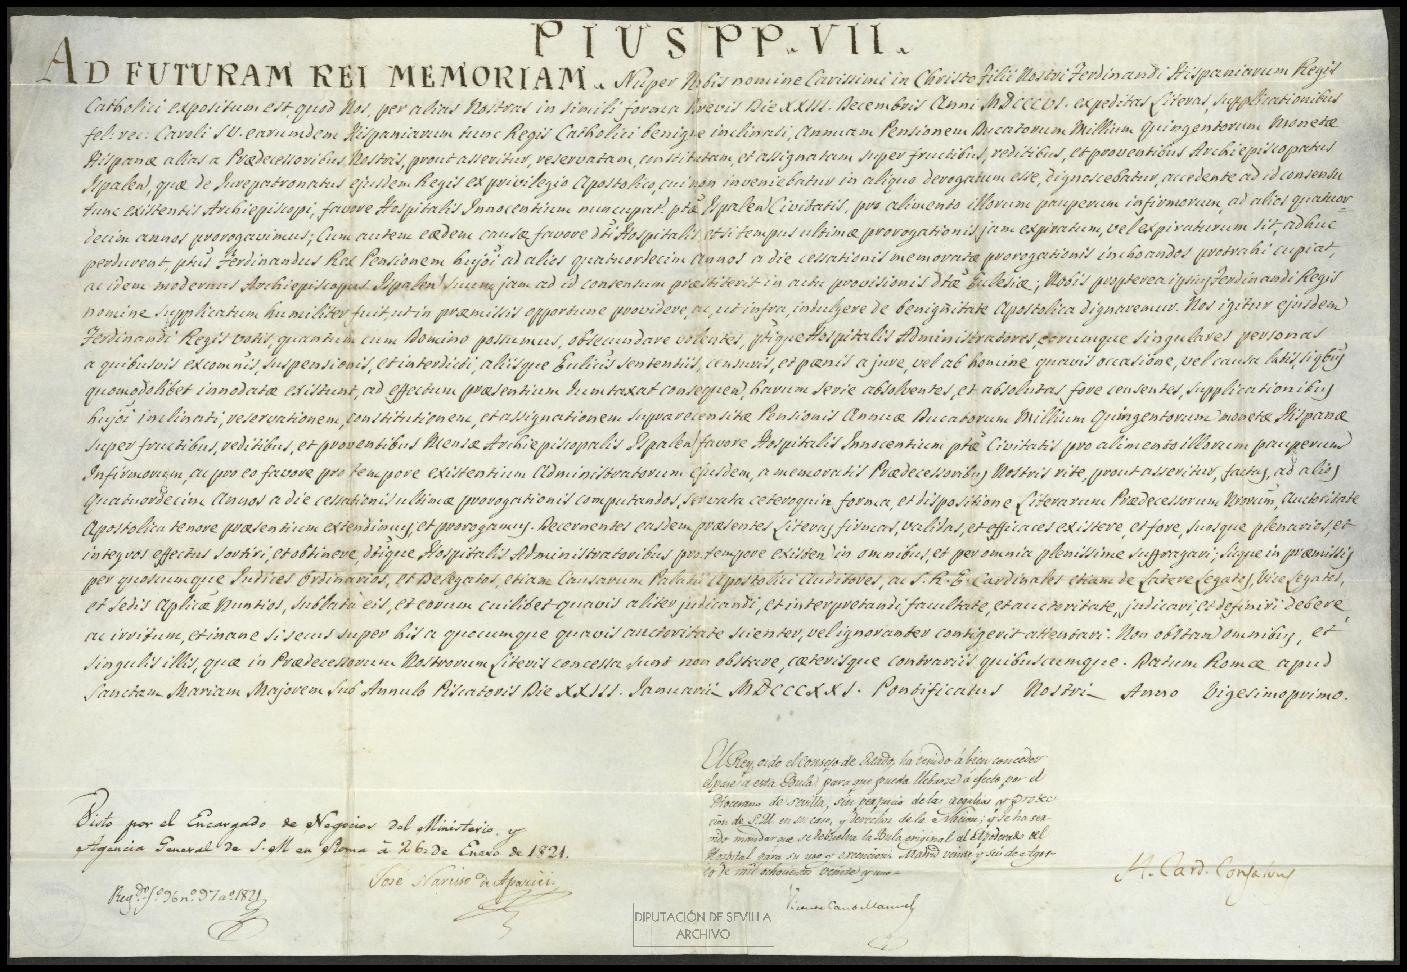 PIUS PP. VII.
AD FUTURAM REI MEMORIAM. Nuper Nobis nomine Carissimi in Christo Filii Nostri Ferdinandi Hispaniarum Regis
Catholici expositum est, quod Nos, per alias Nostras in simili forma Brevis Die XXIII. Decembris Anni MDCCCVI. expeditas Literas, supplicationibus
fel: rec: Caroli IV. earumdem Hispaniarum tunc Regis Catholici benigne inclinati, annuam Pensionem Ducatorum Millium Quingentorum Monetæ
Hispanæ alias a Prædecessoribus Nostris, prout asseritur, reservatam, constitutam, et assignatam super fructibus, reditibus, et proventibus Archiepiscopatus
Ispalen, quæ de Jurepatronatus ejusdem Regis ex privilegio Apostolico, cui non inveniebatur in aliquo derogatum esse, dignoscebatur, accedente ad id consensu
tunc existentis Archiepiscopi, favore Hospitalis Innocentium nuncupat. ptæ Ispalen Civitatis, pro alimento illorum pauperum infirmorum, ad alios quatuor-
decim annos prorogavimus; Cum autem eædem causæ favore dti Hospitalis, etsi tempus ultimæ prorogationis jam expiratum, vel expiraturum sit, adhuc
perdurent, ptus Ferdinandus Rex Pensionem hujoi ad alios quatuordecim annos a die cessationis memoratæ prorogationis inchoandos protrahi cupiat,
ac idem modernus Archiepiscopus Ispalen suum jam ad id consensum præstiterit in actu provisionis dtæ Eclesiæ; Nobis propterea ipsius Ferdinandi Regis
nomine supplicatum humiliter fuit ut in præmissis opportune providere, ac, ut infra, indulgere de benignitate Apostolica dignaremur. Nos igitur ejusdem
Ferdinandi Regis votis, quantum cum Domino possumus, obsecundare volentes, ptique Hospitalis Administratores, eorumque singulares personas
a quibusvis excomnis, suspensionis, et interdicti, aliisque Ecclicis sententiis, censuris, et pœnis a jure, vel ab homine quavis occasione, vel causa latis, si qbus
quomodolibet innodatæ existunt, ad effectum præsentium dumtaxat consequen, harum serie absolventes, et absolutas fore censentes, supplicationibus
hujoi inclinati, reservationem, constitutionem, et assignationem suprarecensitæ Pensionis Annuæ Ducatorum Millium Quingentorum monetæ Hispanæ
super fructibus, reditibus, et proventibus Mensæ Archiepiscopalis Ispalen favore Hospitalis Innocentium ptæ Civitatis pro alimento illorum pauperum
Infirmorum, ac pro eo favore pro tempore existentium Administratorum ejusdem, a memoratis Prædecessoribus Nostris rite, prout asseritur, factas, ad alios
Quatuordecim Annos a die cessationis ultimæ prorogationis computandos, servata ceteroquin forma, et dispositione Literarum Prædecessorum Nrorum, Auctoritate
Apostolica tenore præsentium extendimus, et prorogamus. Decernentes easdem præsentes Literas firmas, validas, et efficaces existere, et fore, suosque plenarios, et
integros effectus sortiri, et obtinere, dtique Hospitalis Administratoribus pro tempore existen in omnibus, et per omnia plenissime suffragari; sicque in præmissis
per quoscumque Judices Ordinarios, et Delegatos, etiam Causarum Palatii Apostolici Auditores, ac S. R. E. Cardinales etiam de Latere Legatos, Vice Legatos,
et Sedis Aplicæ Nuntios, sublata eis, et eorum cuilibet quavis aliter judicandi, et interpretandi facultate, et auctoritate, judicari, et definiri debere
ac irritum, et inane si secus super his a quocumque quavis auctoritate scienter, vel ignoranter contigerit attentari. Non obstan omnibus, et
singulis illis, quæ in Prædecessorum Nostrorum Literis concessa sunt non obstare, cæterisque contrariis quibuscumque. Datum Romæ apud
Sanctam Mariam Majorem Sub Annulo Piscatoris Die XXIII. Januarii MDCCCXXI. Pontificatus Nostri Anno Vigesimoprimo.
El Rey, oido el Consejo de Estado, ha tenido á bien conceder
el pase á esta Bula para que pueda llebarse á efecto por el
Diocesano de Sevilla, sin perjuicio de las regalias y protec-
cion de S.M. en su caso, y derechos de la Nacion; y se ha ser-
vido mandar que se debuelva la Bula original al Apoderado del
Hospital para su uso y execucion. Madrid veinte y seis de Agos-
to de mil ochocientos veinte y uno.
Vicente Cano Manuel
Visto por el Encargado de Negocios del Ministerio, y
Agencia General de S. M en Roma à 26 de Enero de 1821.
José Narciso de Aparici
Regdo fo 96 no 97 ao 1821
H. Card. Consalvus
DIPUTACIÓN DE SEVILLA
ARCHIVO